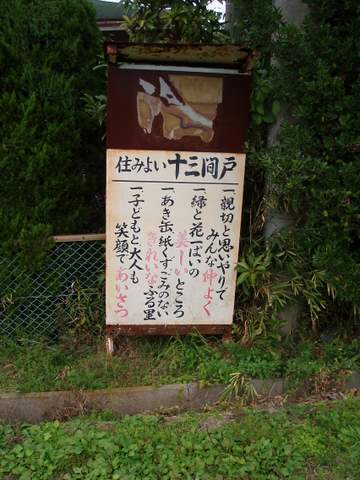 住みよい十三間戸
一、親切と思いやりで
みんな仲よく
一、緑と花一ぱいの
美しいところ
一、あき缶、紙くずごみのない
きれいなふる里
一、子どもと大人も
笑顔であいさつ